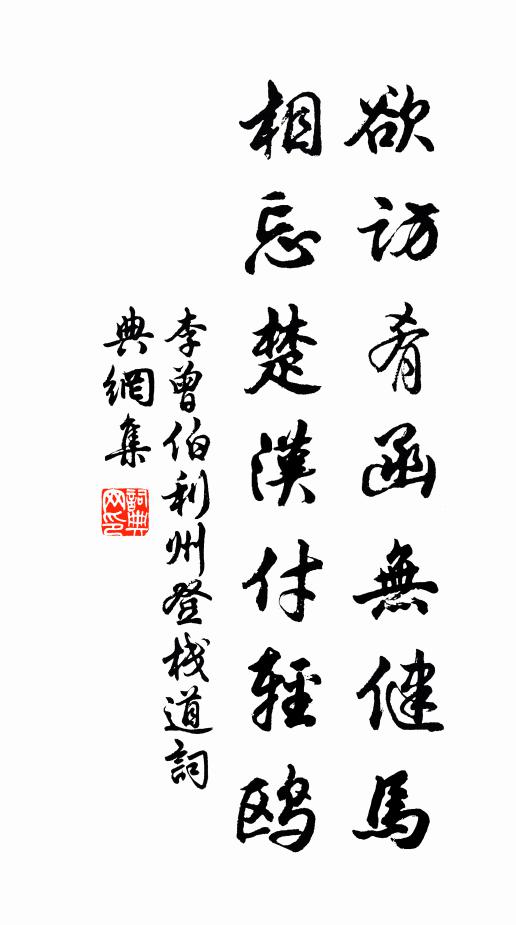 欲访肴函無健馬
相忘楚漢付輕鸥
李曾伯利州登栈道詞
典網集
詞典网印